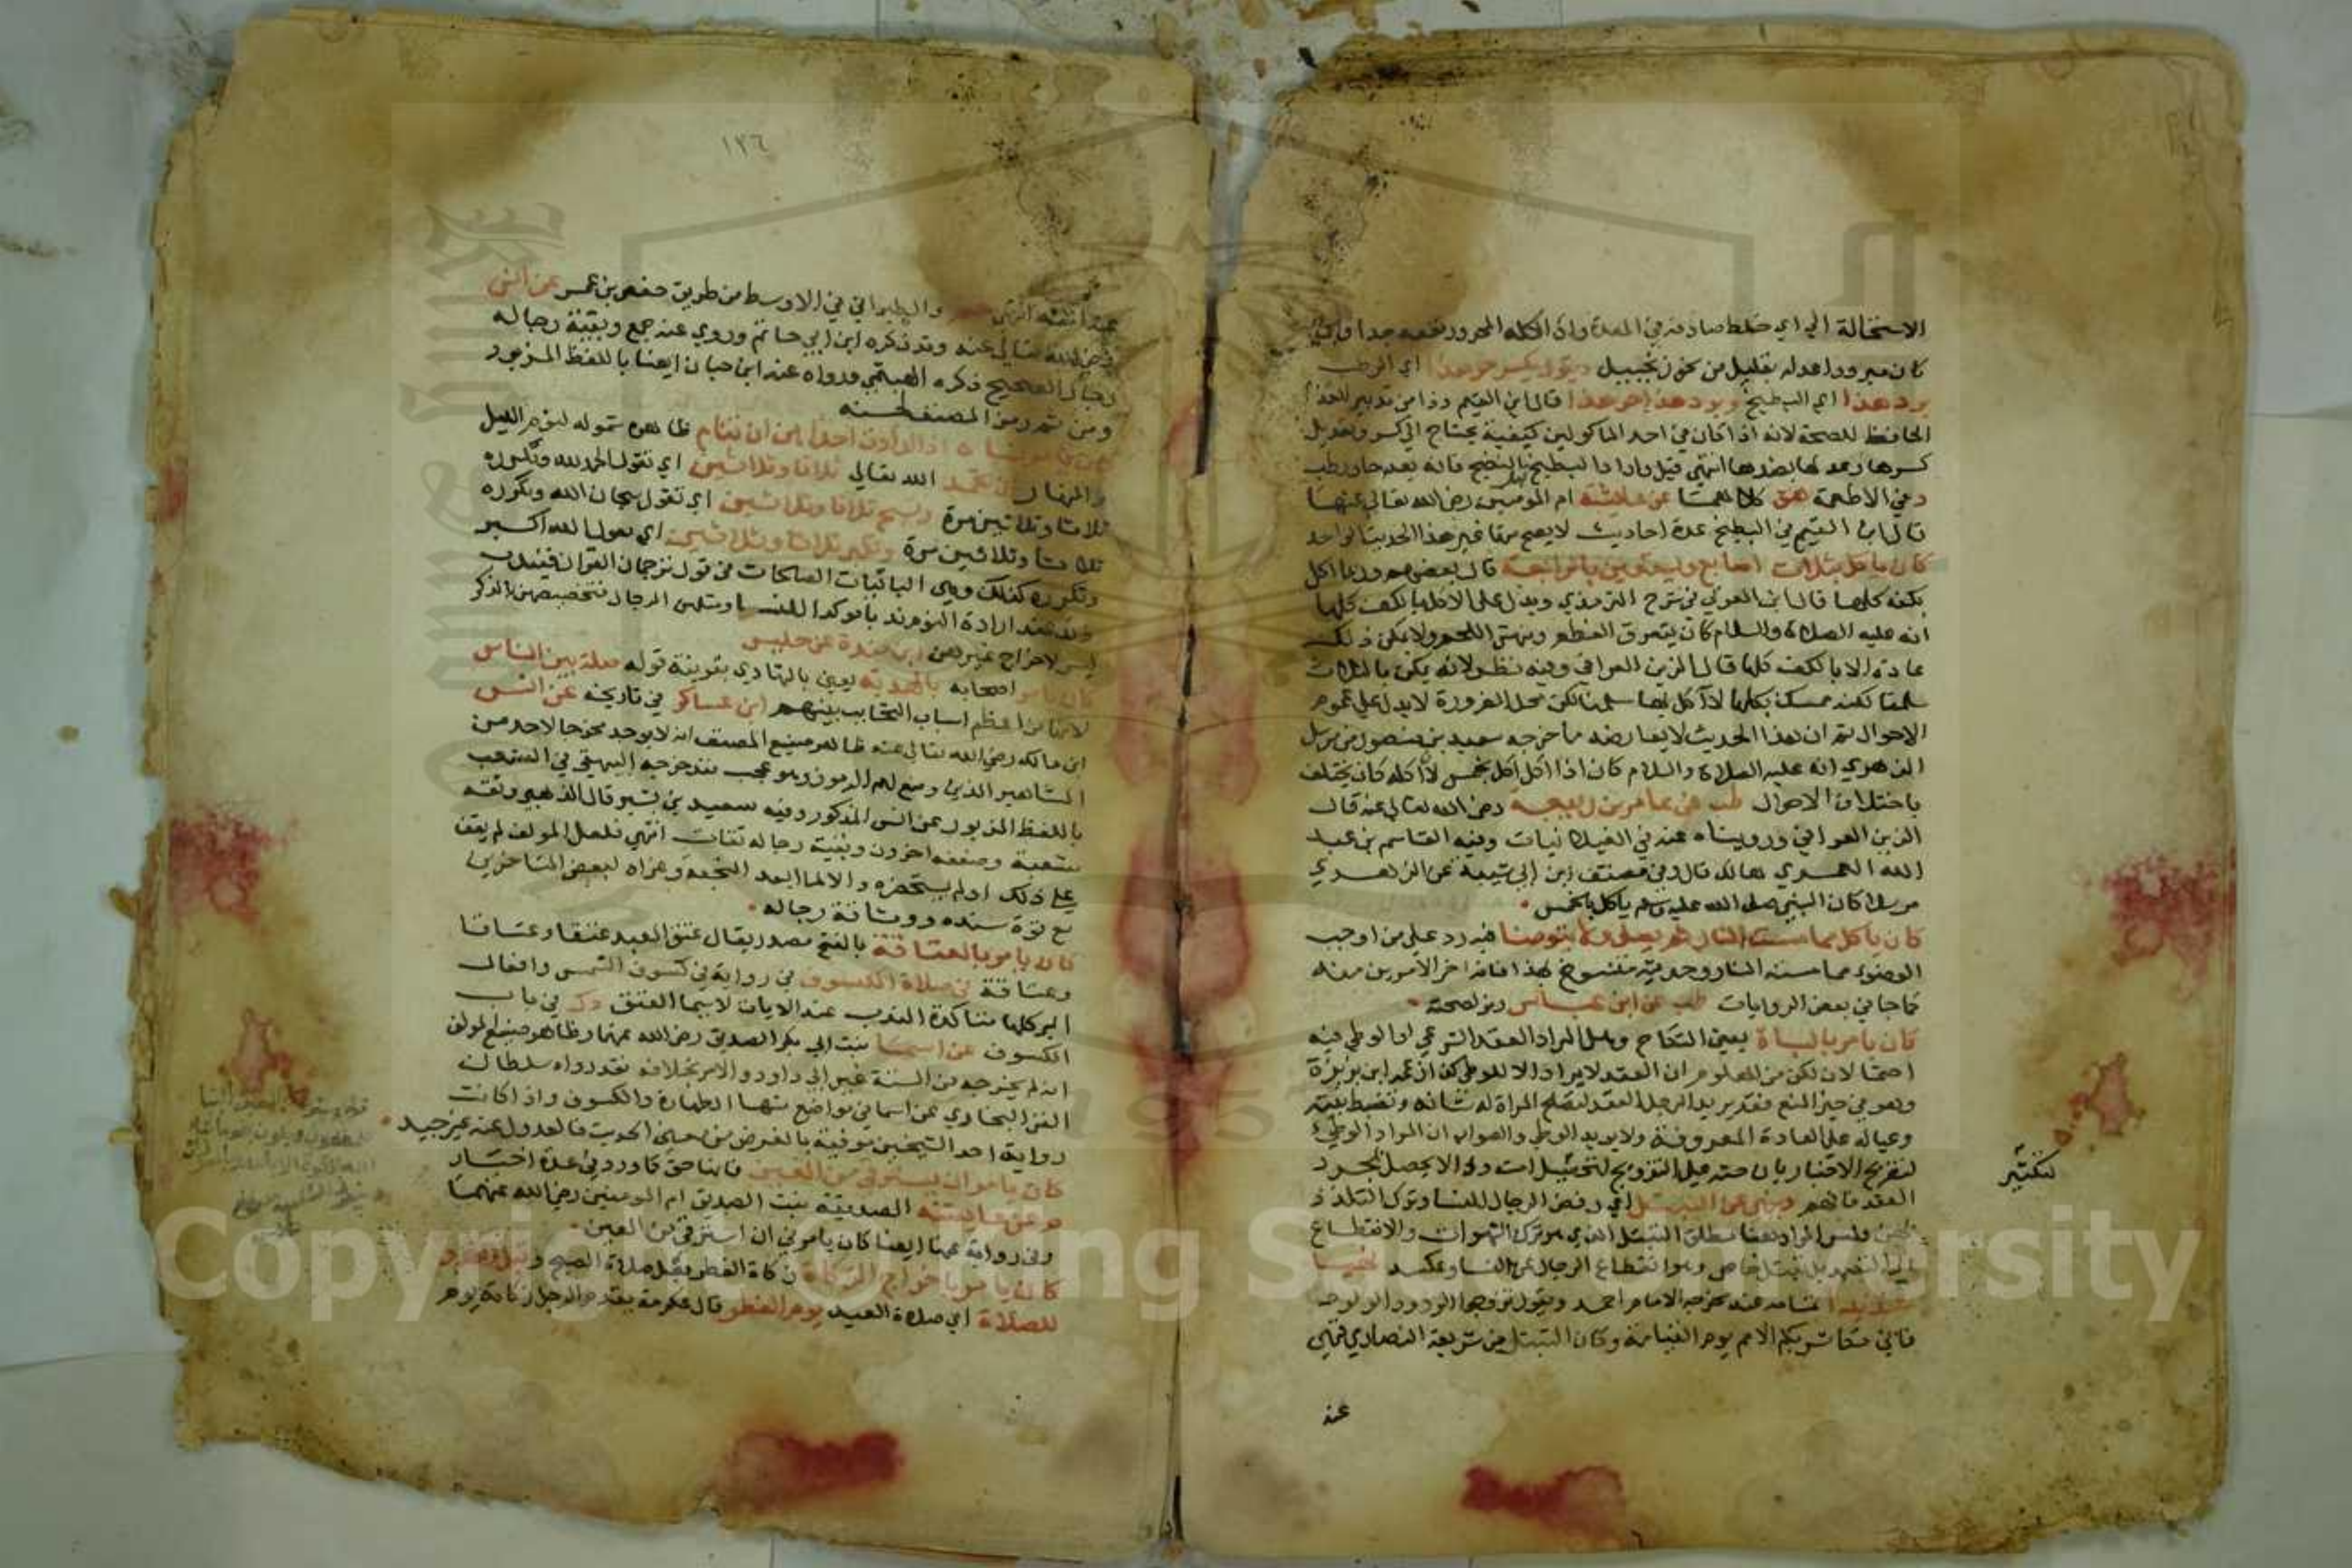 الاستحالة الى اي خلط صادفه في المعدة واذا اكله المحرور نفعه جدا وان
كان مبرودا عدله بقليل من نحو زنجبيل ويقول يكسر حر هذا اي الرطب
برد هذا اي البطيخ وبرد هذا حر هذا قال ابن القيم وذا من تدبير الغذا
الحافظ للصحة لانه اذا كان في احد الماكولين كيفية يحتاج الى كسر وتعديل
كسرها وعدلها بضدها انتهى قيل واراد البطيخ النضيج فانه بعد حار رطب
د في الاطعمة هق كلاهما عن عايشة ام المومنين رضى الله تعالى عنها
قال ابن القيم في البطيخ عدة احاديث لا يصح منها غير هذا الحديث الواحد
كان ياكل بثلاث اصابع ويستعين بالرابعة قال بعضهم وربما اكل
بكفه كلها قال ابن العربي في شرح الترمذي ويدل على الاكل بالكف كلها
انه عليه الصلاة والسلام كان يتعرق العظم وينهش اللحم ولا يمكن ذلك
عادة الا بالكف كلها قال الزين العراقي وفيه نظر لانه يمكن بالثلاث
سلمنا لكنه ممسك بكلها لا آكل بها سلمنا لكن محل الضرورة لا يدل على عموم
الاحوال ثم ان هذا الحديث لا يعارضه ما خرجه سعيد بن منصور من مرسل
الزهري انه عليه الصلاة والسلام كان اذا اكل اكل بخمس لان اكله كان يختلف
باختلاف الاحوال طب عن عامر بن ربيعة رضى الله تعالى عنه قال
الزين العراقي ورويناه عنه في الغيلانيات وفيه القاسم بن عبد
الله العمري هالك قال وفي مصنف ابن ابي شيبة عن الزهري
مرسلا كان النبي صلى الله عليه وسلم ياكل بالخمس
كان ياكل مما مست النار ثم يصلي ولا يتوضا فيه رد على من اوجب
الوضوء مما مسته النار وحديثه منسوخ بهذا فانه اخر الامرين منه
كما جا في بعض الروايات طب عن ابن عباس رمز لصحته
كان يامر بالباة يعني النكاح وهل المراد العقد الشرعي او الوطي فيه
احتمالان لكن من المعلوم ان العقد لا يراد الا للوطي كذا زعمه ابن بزيزة
وهو في حيز المنع فقد يريد الرجل العقد لتصلح المراة له شانه وتضبط بيته
وعياله على العادة المعروفة ولا يريد الوطي والصواب ان المراد الوطي
لتصريح الاخبار بان حثه على التزويج لتكثير امته وذا لا يحصل بمجرد
العقد فافهم وينهى عن التبتل اي رفض الرجال للنسا وترك التلذذ
بهن وليس المراد هنا مطلق التبتل الذي هو ترك الشهوات والانقطاع
الى التعبد بل تبتل خاص وهو انقطاع الرجال عن النسا وعكسه نهيا
شديدا تمامه عند مخرجه الامام احمد ويقول تزوجوا الودود الولود
فاني مكاثر بكم الامم يوم القيامة وكان التبتل من شريعة النصارى فنهى
عنه
لتكثير
١٣٦
والطبراني في الاوسط من طريق حفص بن عمر عن انس
رضى الله تعالى عنه وقد ذكره ابن ابي حاتم وروي عنه جمع وبقية رجاله
رجال الصحيح ذكره الهيثمي ورواه عنه ابن حبان ايضا باللفظ المزبور
ومن ثم رمز المصنف لحسنه
اذا ارادت احداهن ان تنام ظاهره شموله لنوم الليل
والنهار ان تحمد الله تعالى ثلاثا وثلاثين اي تقول الحمد لله وتكرره
ثلاثا وثلاثين مرة وتسبح ثلاثا وثلاثين اي تقول سبحان الله وتكرره
ثلاثا وثلاثين مرة وتكبر ثلاثا وثلاثين اي تقول الله اكبر
وتكرره كذلك وهي الباقيات الصالحات في قول ترجمان القران فيندب
ذلك عند ارادة النوم ندبا موكدا للنسا ومثلهن الرجال فتخصيصهن بالذكر
ليس لاخراج غيرهن ابن مندة عن حلبس
كان يامر اصحابه بالهدية يعني بالتهادي بقرينة قوله صلة بين الناس
لانها من اعظم اسباب التحابب بينهم ابن عساكر في تاريخه عن انس
ابن مالك رضي الله تعالى عنه ظاهر صنيع المصنف انه لا يوجد مخرجا لاحد من
المشاهير الذين وضع لهم الرموز وهو عجب فقد خرجه البيهقي في الشعب
باللفظ المزبور عن انس المذكور وفيه سعيد بن بشير قال الذهبي وثقه
شعبة وضعفه اخرون وبقية رجاله ثقات انتهى فلعل المولف لم يقف
على ذلك او لم يستحضره والا لما ابعد النجعة وعزاه لبعض المتاخرين
مع قوة سنده ووثاقة رجاله
كان يامر بالعتاقة بالفتح مصدر يقال عتق العبد عتقا وعتاقا
وعتاقة في صلاة الكسوف في رواية في كسوف الشمس وافعال
البر كلها متاكدة الندب عند الايات لا سيما العتق د ك في باب
الكسوف عن اسما بنت ابي بكر الصديق رضى الله عنهما وظاهر صنيع المولف
انه لم يخرجه من الستة غير ابي داود والامر بخلافه فقد رواه سلطان
الفن البخاري عن اسما في مواضع منها الطهارة والكسوف واذا كانت
رواية احد الشيخين موفية بالغرض من معنى الحديث فالعدول عنه غير جيد
كان يامر ان يسترقى من العين فانها حق كما ورد في عدة اخبار
م عن عايشة الصديقة بنت الصديق ام المومنين رضي الله عنهما
وفي رواية عنها ايضا كان يامرني ان استرقي من العين
كان يامر باخراج الزكاة زكاة الفطر بعد صلاة الصبح وقبل الغدو
للصلاة اي صلاة العيد يوم الفطر قال عكرمة يقدم الرجل زكاته يوم
Copyright © King Saud University
1957